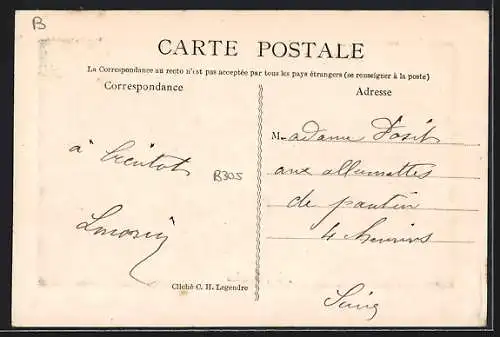 B
CARTE POSTALE
La Correspondance au recto n'est pas acceptée par tous les pays étrangers (se renseigner à la poste)
Correspondance
Adresse
à bientot
B305
Madame
aux allumettes
de pantin
4 chemins
Seine
Cliché C. H. Legendre